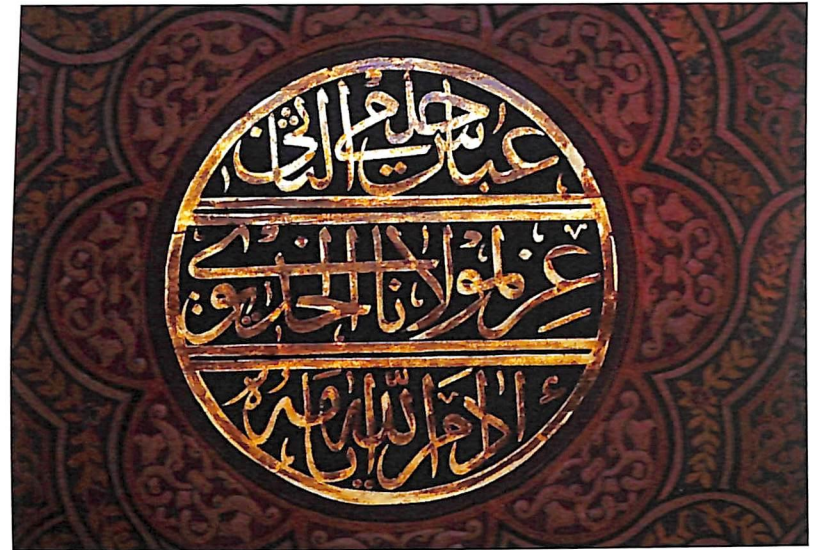 عباس حلمي الثاني
عز لمولانا الخديوي
ادام الله ايامه